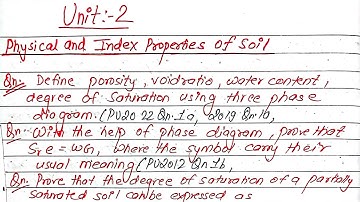 Unit:-2
Physical and Index Properties of Soil
Qn:- Define porosity, void ratio, water content,
degree of saturation using three phase
diagram. (PU2022 Qn.1a, 2019 Qn.1b,
Qn:- With the help of phase diagram, prove that
Sre = wG, where the symbol carry their
usual meaning (PU2012 Qn.1b,
Qn. Prove that the degree of saturation of a partially
saturated soil can be expressed as